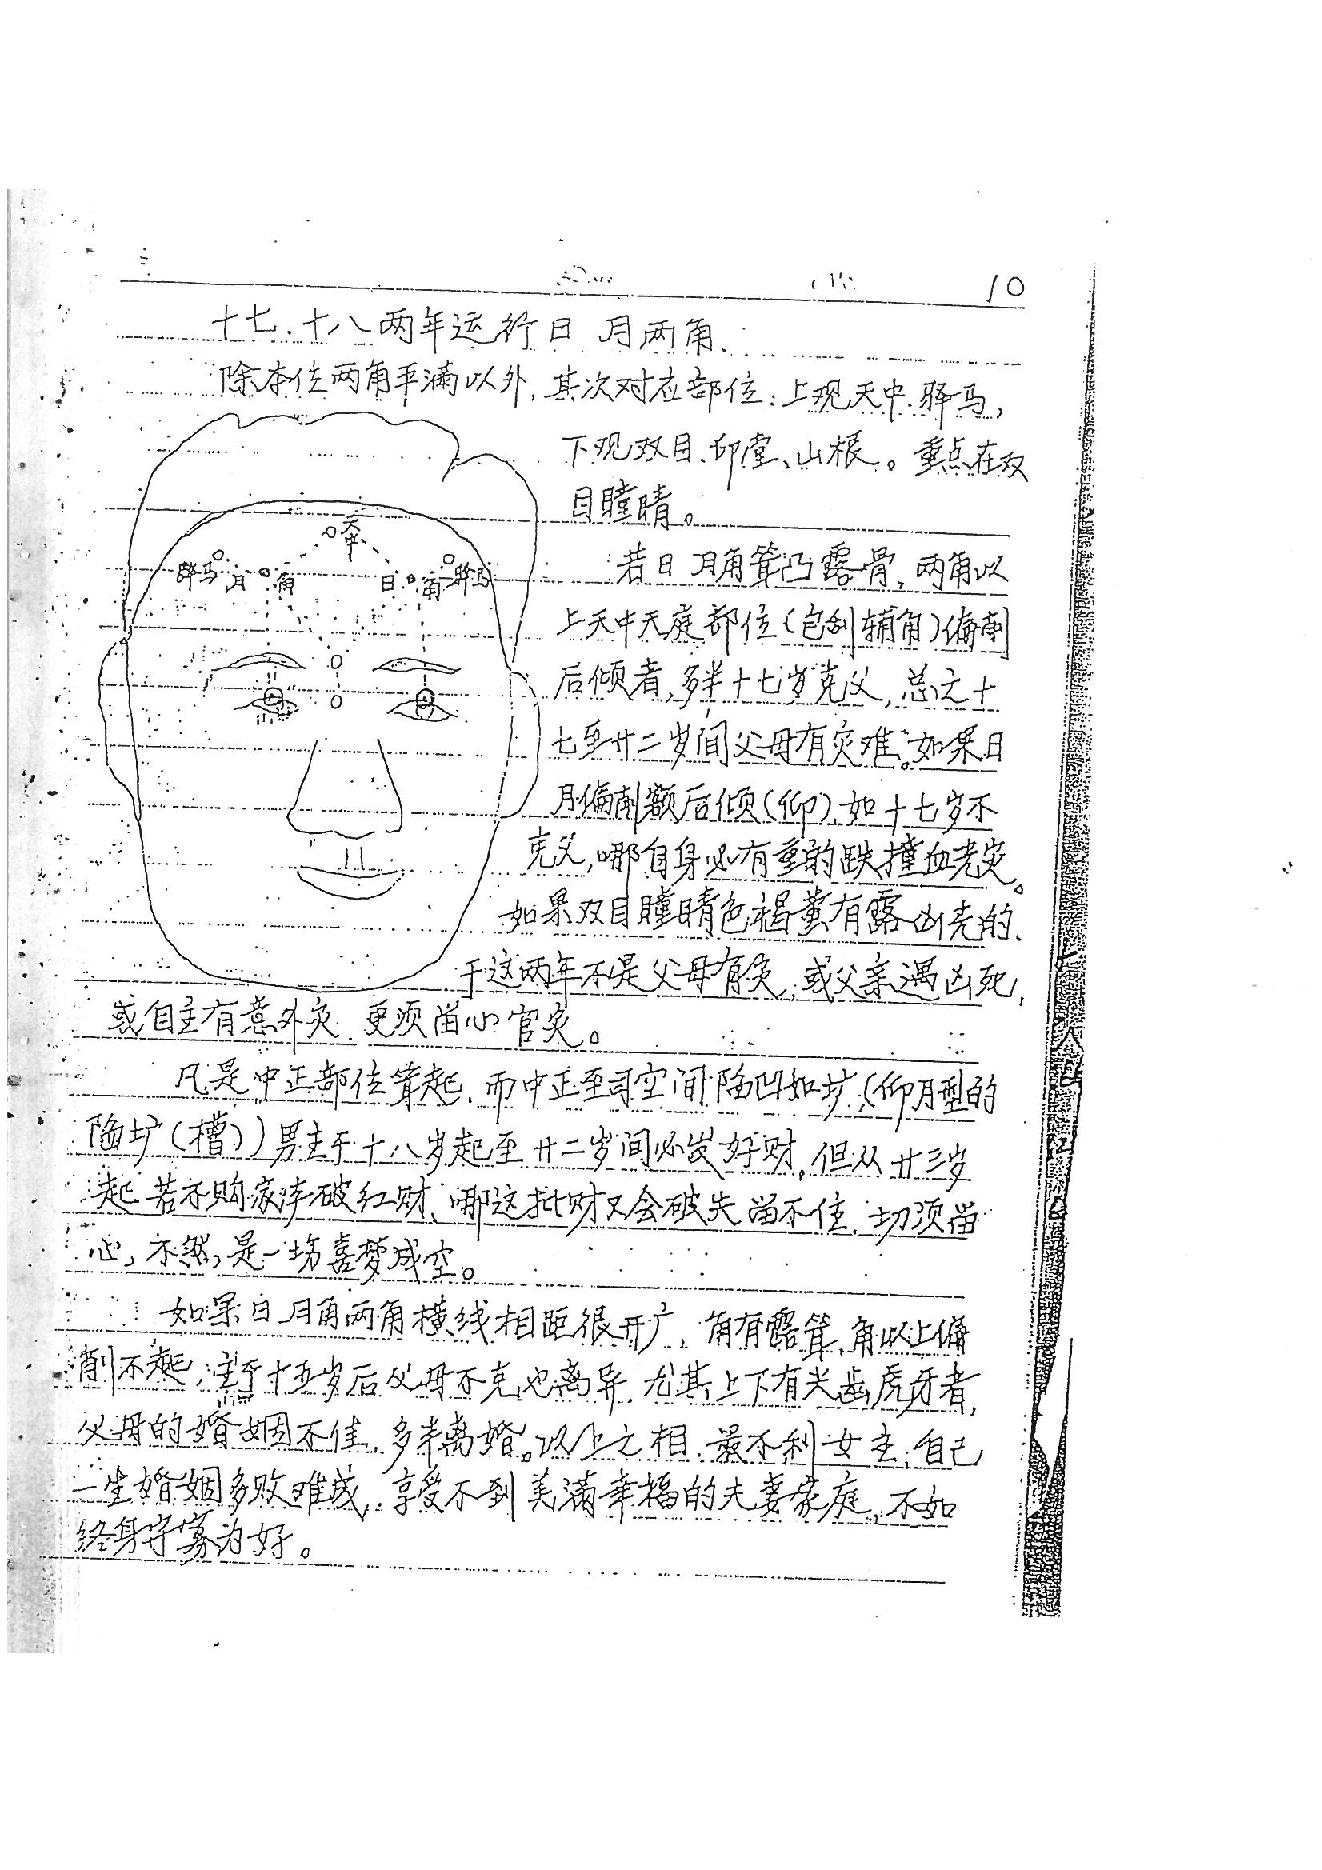 10
十七、十八两年运行日月两角.
除本位两角平满以外,其次对应部位:上观天中.驿马,
下观双目、印堂、山根。重点在双
目瞳睛。
天中
驿马 月 角 日 角 驿马
若日月角耸凸露骨,两角以
上天中天庭部位(包刮辅角)偏削
后倾者,多半十七岁克父,总之十
七至廿二岁间父母有灾难。如果日
月偏削额后倾(仰),如十七岁不
克父,哪自身必有重的跌撞血光灾。
如果双目瞳睛色褐黄有露凶光的、
于这两年不是父母有灾,或父亲遇凶死,
或自主有意外灾.更须留心官灾。
凡是中正部位耸起.而中正至司空间陷凹如圹,(仰月型的
陷圹(槽))男主于十八岁起至廿二岁间必发好财,但从廿三岁
起若不购家 破红财、哪这批财又会破失留不住,切须留
心,不然,是一场喜梦成空。
如果日月角两角横线相距很开广,角有露耸,角以上偏
削不起;主于十五岁后父母不克也离异,尤其上下有尖齿虎牙者,
父母的婚姻不佳,多半离婚。以上之相,最不利女主,自己
一生婚姻多败难成,享受不到美满幸福的夫妻家庭,不如
终身守寡为好。